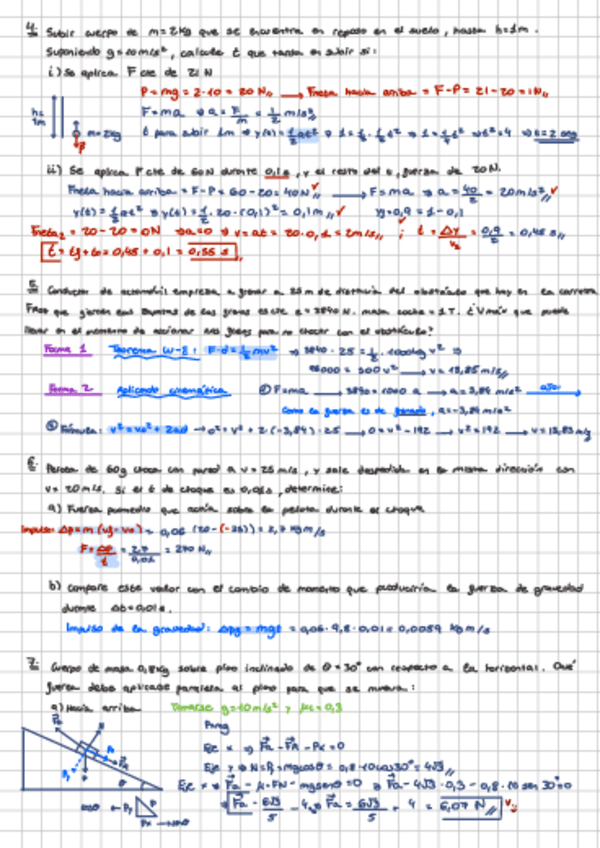 4. Subir cuerpo de m=2kg que se encuentra en reposo en el suelo, hasta h=1m.
Suponiendo g=10m/s², calcule t que tarda en subir si:
i) Se aplica F cte de 21 N
P=mg=2·10=20N,, → Fneta hacia arriba = F-P = 21-20=1N,,
h=1m
F=ma → a=F/m = 1/2 m/s²,,
m=2kg
P
t para subir 1m → y(t)=1/2at² → 1=1/2·1/2t² → 1=1/4t² → t²=4 → t=2 seg
ii) Se aplica F cte de 60N durante 0,1s, y el resto del t, fuerza de 20N.
Fneta hacia arriba = F-P = 60-20=40N,, → F=ma → a=40/2 = 20m/s²,,
y(t)=1/2at² → y(t)=1/2·20·(0,1)²=0,1m,, y=0,9=1-0,1
Fneta2 = 20-20=0N → a=0 → v=at=20·0,1=2m/s,, ; t=Δy/v2=0,9/2=0,45s,,
t=ty+t0=0,45+0,1=0,55 s
5. Conductor de automóvil empieza a frenar a 25m de distancia del obstáculo que hay en la carretera.
FROZ que ejercen las de los frenos es cte = 3840 N. masa coche = 1T. ¿Vmáx que puede
llevar en el momento de accionar los frenos para no chocar con el obstáculo?
Forma 1 Teorema W-E: F·d=1/2mv² → 3840·25=1/2·1000kg v² →
96000=500v² → v=13,85m/s,,
Forma 2 Aplicando cinemática ① F=ma → 3840=1000a → a=3,84 m/s²
Como la fuerza es de frenado, a=-3,84 m/s²
② Fórmula: v²=v0²+2ad → 0²=v²+2(-3,84)·25 → 0=v²-192 → v²=192 → v=13,85m/s
6. Pelota de 60g choca con pared a v=25m/s, y sale despedida en la misma dirección con
v=20m/s. Si el t de choque es 0,01s, determine:
a) Fuerza promedio que actúa sobre la pelota durante el choque
Impulso: Δp=m(vf-v0)=0,06(20-(-25))=2,7 kg m/s
F=Δp/t=2,7/0,01=270N,,
b) Compare este valor con el cambio de momento que produciría la fuerza de gravedad
durante Δt=0,01s.
Impulso de la gravedad: Δpg=mgt=0,06·9,8·0,01=0,0059 kg m/s
7. Cuerpo de masa 0,8kg sobre plano inclinado de θ=30° con respecto a la horizontal. Qué
fuerza debe aplicarse paralela al plano para que se mueva:
a) Hacia arriba Tomarse g=10m/s² y μ=0,3
Eje x → Fa-FR-Px=0
Eje y → N=Py=mgcosθ=0,8·10cos30°=4√3,,
Eje x → Fa-μ·FN-mgsenθ=0 → Fa-4√3·0,3-0,8·10 sen 30°=0
Fa-6√3/5-4 → Fa=6√3/5+4=6,07 N